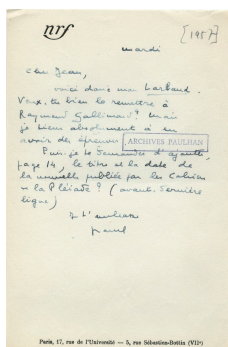 nrf
[1957]
mardi
Cher Jean,
voici donc mon Larbaud.
Veux-tu bien le remettre à
Raymond Gallimard? Mais
je tiens absolument à en
avoir des épreuves.
ARCHIVES PAULHAN
Puis-je te demander d'ajouter,
page 14, le titre et la date de
la nouvelle publiée par les Cahiers
de la Pléiade? (avant-dernière
ligne)
Je t'embrasse
Paris, 17, rue de l'Université — 5, rue Sébastien-Bottin (VIIe)